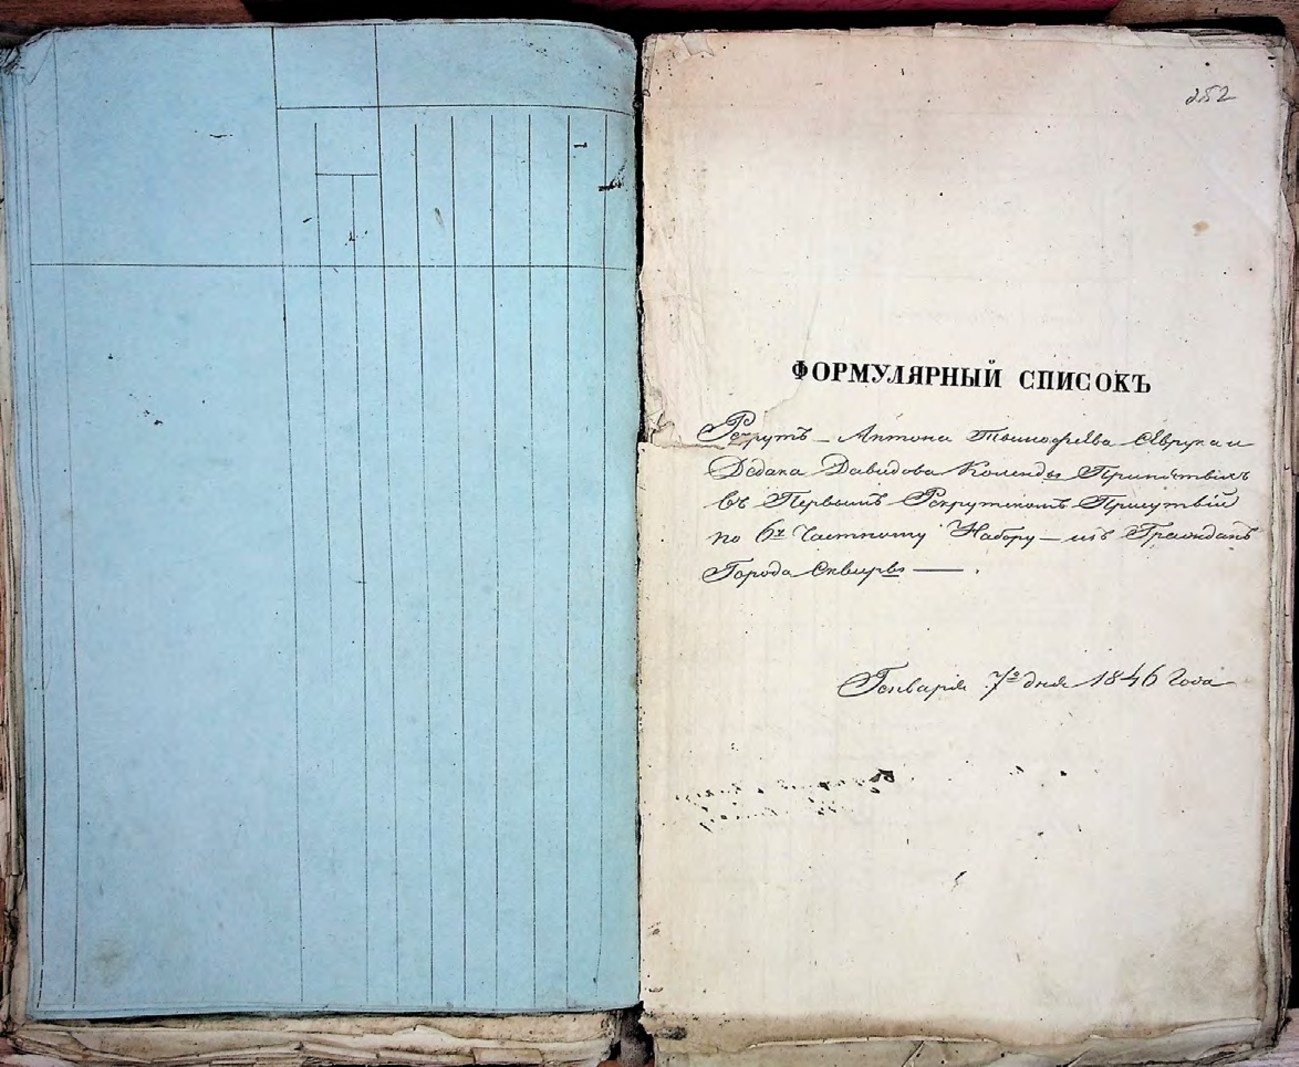 282
ФОРМУЛЯРНЫЙ СПИСОКЪ
Рекрутъ — Антона Тимофеева Севрука и
Давидова Коленды
въ Первомъ Рекрутскомъ Присутствіи
по 6му Частному Набору — изъ Гражданъ
Города Сквиры — .
Генваря 7го дня 1846 Года